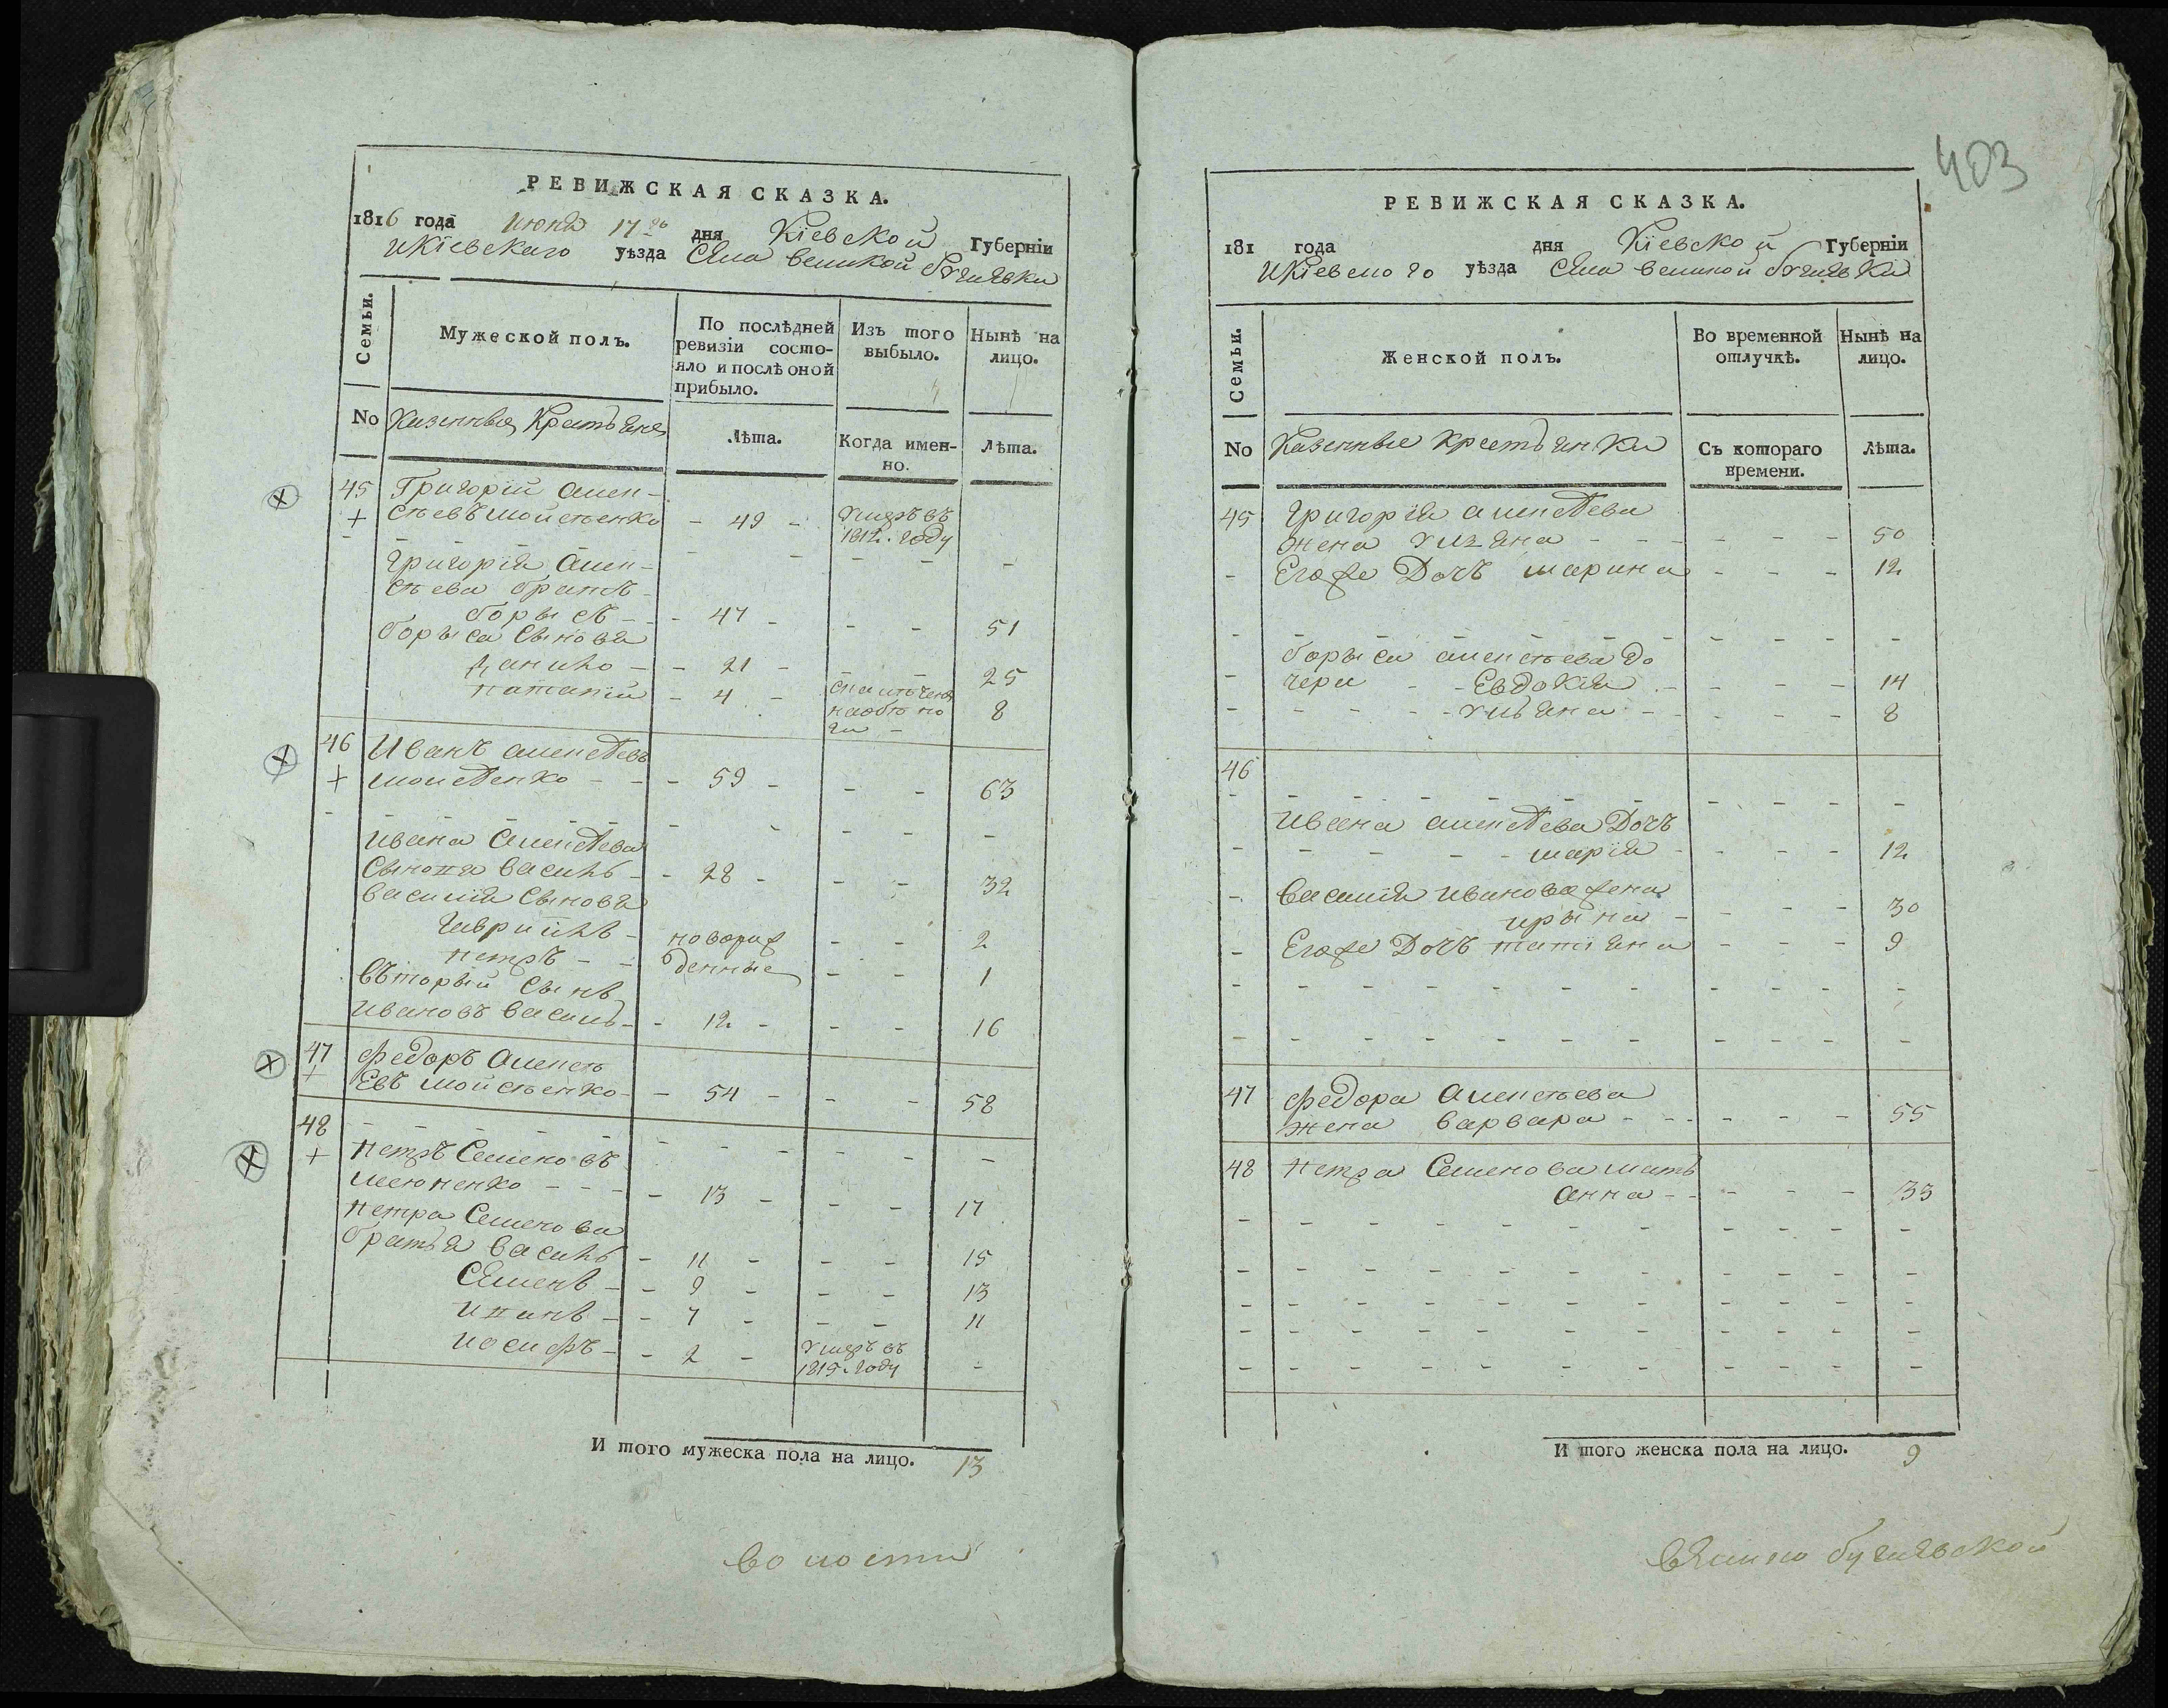 РЕВИЖСКАЯ СКАЗКА.
1816 года июня 17го дня Кіевской Губерніи
и Кіевскаго уѣзда Села великой бугаевки
Семьи.
Мужеской полъ.
По послѣдней ревизіи состояло и послѣ оной прибыло.
Изъ того выбыло.
Нынѣ на лицо.
No Казенные Крестьяне
Лѣта.
Когда именно.
Лѣта.
45 Григорій Алек-
+ сѣевъ Мойсѣенко - 49 - Умеръ въ
1812. году
Григорія Алек-
сѣева братъ
борысъ - 47 - - - 51
борыса Сынова
Данило - 21 - - - 25
Потапій - 4 - 8
46 Иванъ Алексѣевъ
+ Мойсѣенко - 59 - - - 63
Ивана Алексѣева
Сынова Василь - 28 - - - 32
василія Сынова
Гаврыілъ - новорож - - 2
петръ - - денные - - 1
Вторый Сынъ
Ивановъ Василь - 12 - - - 16
47 Федоръ Алексѣ
+ Евъ Мойсѣенко - 54 - - - 58
48
+ Петръ Семеновъ
- 13 - - - 17
петра Семенова
братья Василь - 11 - - - 15
Семенъ - 9 - - - 13
Иванъ - 7 - - - 11
Иосифъ - 2 - Умеръ въ -
1815. году
И того мужеска пола на лицо. 13
волости
403
РЕВИЖСКАЯ СКАЗКА.
181 года дня Кіевской Губерніи
и Кіевского уѣзда Села великой бугаевки
Семьи.
Женской полъ.
Во временной отлучкѣ.
Нынѣ на лицо.
No Казенные крестьянки
Съ котораго времени.
Лѣта.
45 Григорія Алексѣева
жена Улияна - - - 50
Егоже Дочъ Марина - - - 12
борыса алексѣева до
чери - Евдокія - - - 14
- Ульяна - - - 8
46
Ивана Алексѣева Дочъ
Марія - - - 12
Василія Иванова жена
ирына - - - 30
Егоже Дочъ татіяна - - - 9
47 Федора Алексѣева
жена варвара - - - 55
48 Петра Семенова мать
анна - - - 33
И того женска пола на лицо. 9
бугаевской